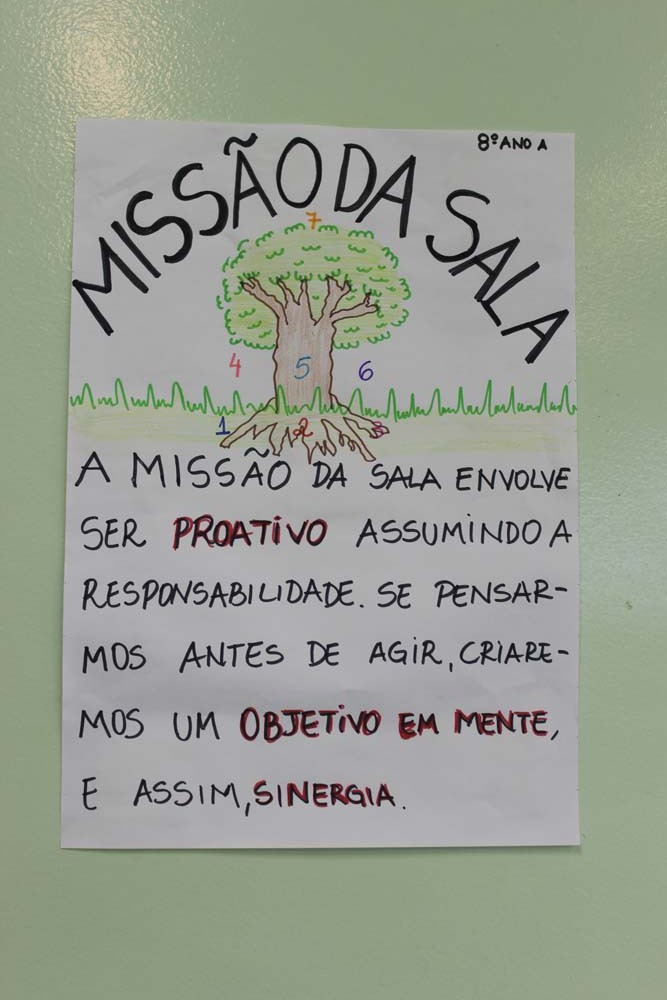 8º ANO A
MISSÃO DA SALA
7
4 5 6
1 2 3
A MISSÃO DA SALA ENVOLVE
SER PROATIVO ASSUMINDO A
RESPONSABILIDADE. SE PENSAR-
MOS ANTES DE AGIR, CRIARE-
MOS UM OBJETIVO EM MENTE,
E ASSIM, SINERGIA.